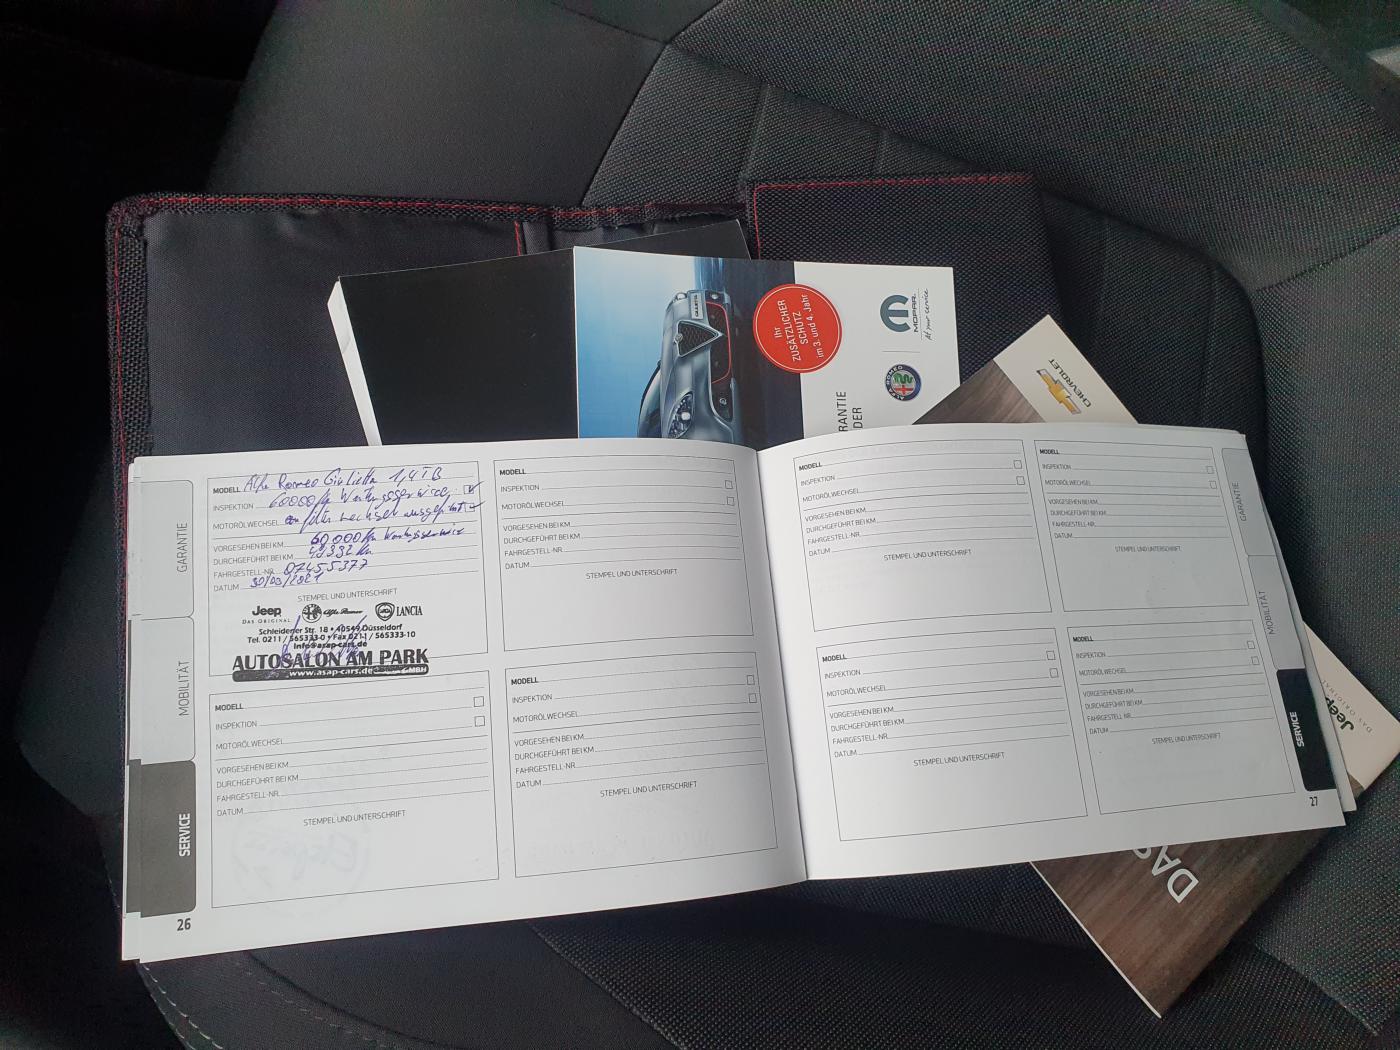 Ihr
ZUSÄTZLICHER
SCHUTZ
im 3. und 4. Jahr
MOPAR
At your service
ALFA ROMEO
CHEVROLET
GARANTIE
MOBILITÄT
SERVICE
26
MODELL Alfa Romeo Giulietta 1,4 TB
INSPEKTION 60000 Km Wartungsservice
MOTORÖLWECHSEL filterwechsel ausgeführt
VORGESEHEN BEI KM 60 000 Km Wartungsservice
DURCHGEFÜHRT BEI KM
FAHRGESTELL-NR. 07455377
DATUM 30/03/2021
STEMPEL UND UNTERSCHRIFT
Jeep
DAS ORIGINAL
Alfa Romeo
LANCIA
Schleidener Str. 18 • 40549 Düsseldorf
Tel. 0211 / 565333-0 • Fax 0211 / 565333-10
Info@asap-cars.de
AUTOSALON AM PARK
www.asap-cars.de GMBH
MODELL
INSPEKTION
MOTORÖLWECHSEL
VORGESEHEN BEI KM
DURCHGEFÜHRT BEI KM
FAHRGESTELL-NR.
DATUM
STEMPEL UND UNTERSCHRIFT
MODELL
INSPEKTION
MOTORÖLWECHSEL
VORGESEHEN BEI KM
DURCHGEFÜHRT BEI KM
FAHRGESTELL-NR.
DATUM
STEMPEL UND UNTERSCHRIFT
MODELL
INSPEKTION
MOTORÖLWECHSEL
VORGESEHEN BEI KM
DURCHGEFÜHRT BEI KM
FAHRGESTELL-NR.
DATUM
STEMPEL UND UNTERSCHRIFT
MODELL
INSPEKTION
MOTORÖLWECHSEL
VORGESEHEN BEI KM
DURCHGEFÜHRT BEI KM
FAHRGESTELL-NR.
DATUM
STEMPEL UND UNTERSCHRIFT
MODELL
INSPEKTION
MOTORÖLWECHSEL
VORGESEHEN BEI KM
DURCHGEFÜHRT BEI KM
FAHRGESTELL-NR.
DATUM
STEMPEL UND UNTERSCHRIFT
MODELL
INSPEKTION
MOTORÖLWECHSEL
VORGESEHEN BEI KM
DURCHGEFÜHRT BEI KM
FAHRGESTELL-NR.
DATUM
STEMPEL UND UNTERSCHRIFT
MODELL
INSPEKTION
MOTORÖLWECHSEL
VORGESEHEN BEI KM
DURCHGEFÜHRT BEI KM
FAHRGESTELL NR.
DATUM
STEMPEL UND UNTERSCHRIFT
GARANTIE
MOBILITÄT
SERVICE
27
Jeep
DAS ORIGINAL
DAS